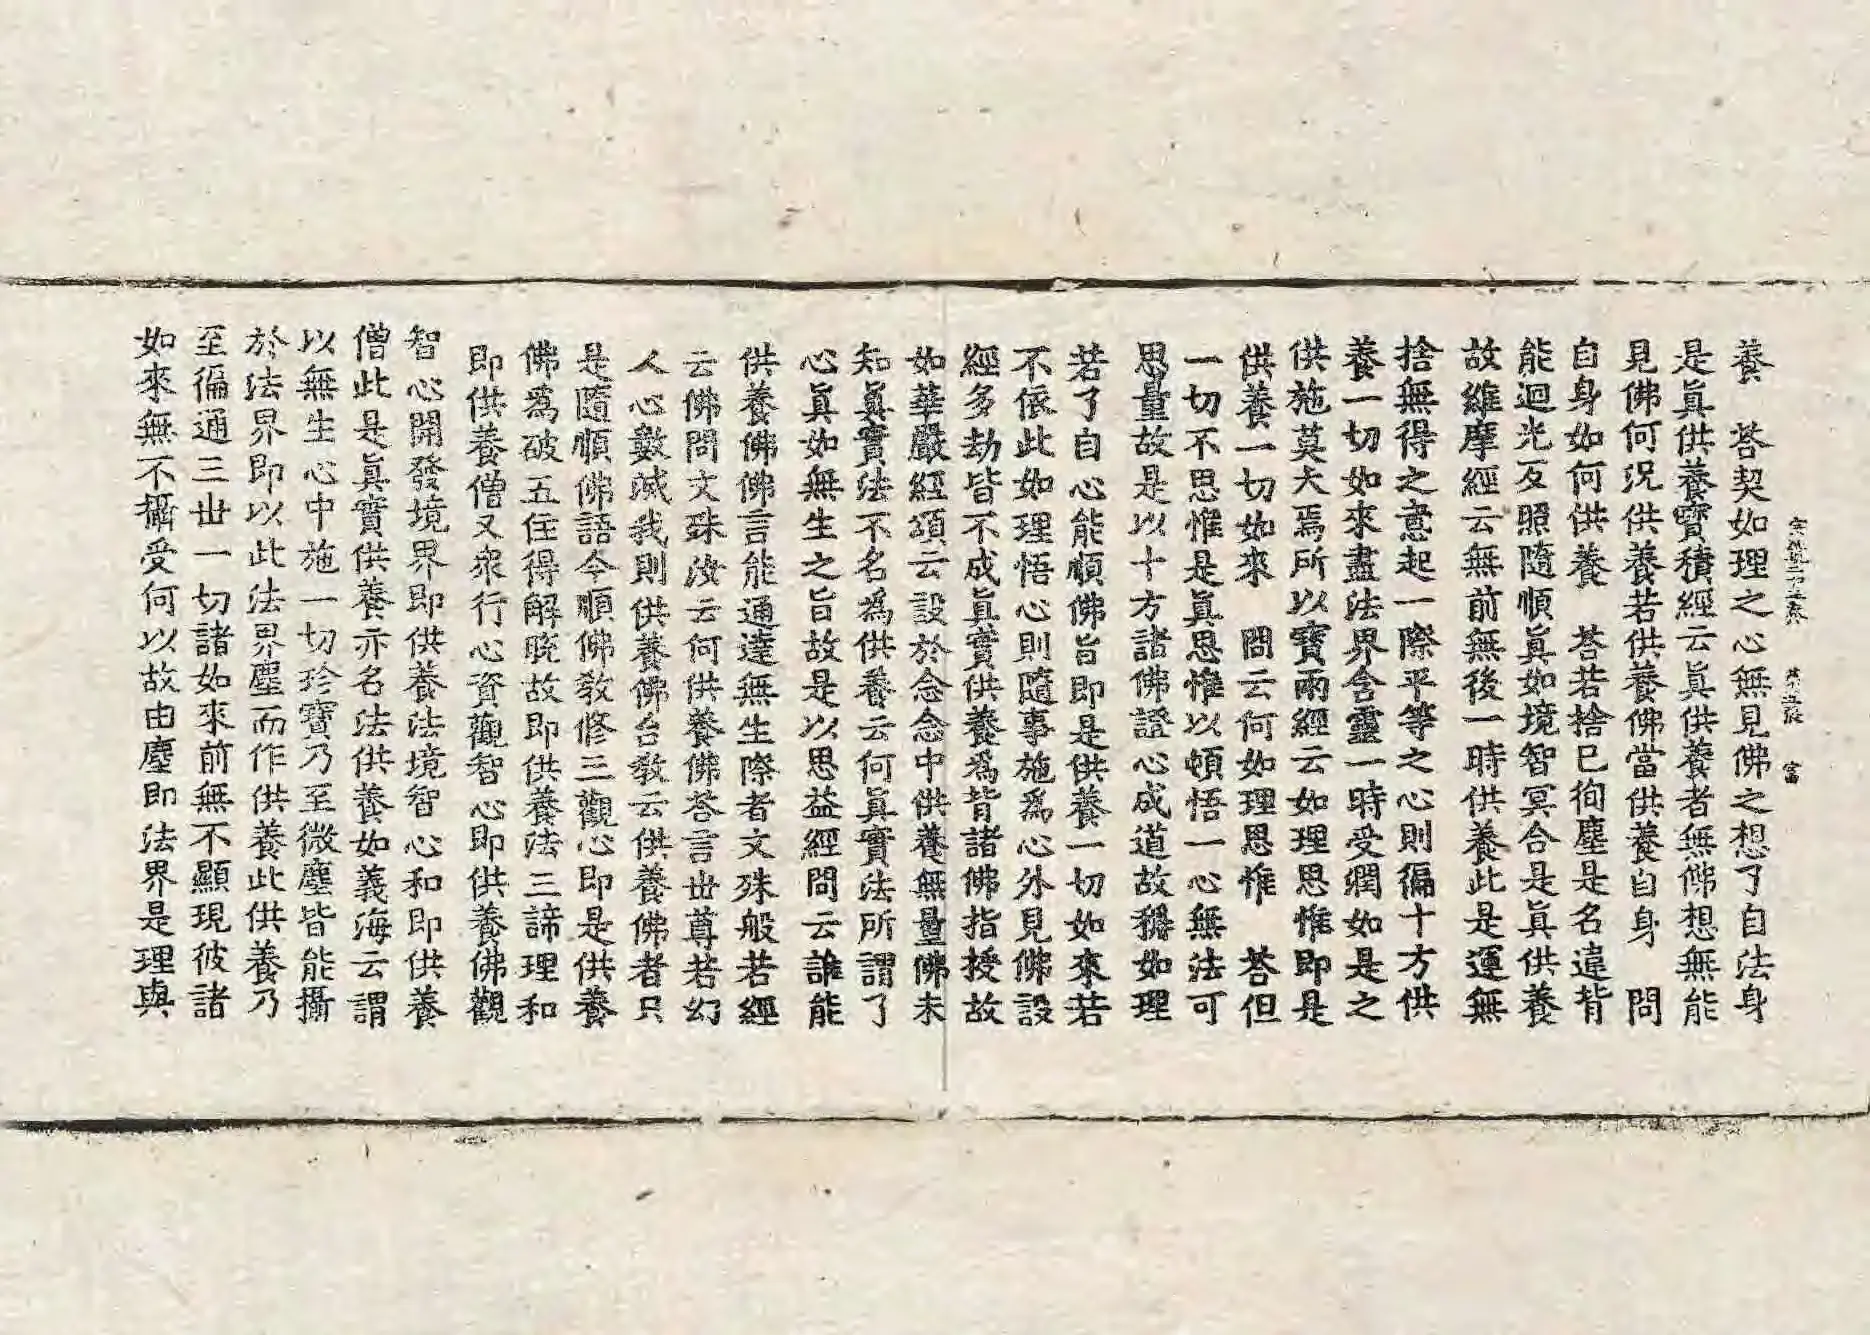 養　荅契如理之心無見佛之想了自法身
是眞供養寶積經云眞供養者無佛想無能
見佛何況供養若供養佛當供養自身　問
自身如何供養　荅若捨已徇塵是名違背
能迴光反照隨順眞如境智冥合是眞供養
故維摩經云無前無後一時供養此是運無
捨無得之意起一際平等之心則徧十方供
養一切如來盡法界含靈一時受潤如是之
供施莫大焉所以寶雨經云如理思惟即是
供養一切如來　問云何如理思惟　荅但
一切不思惟是眞思惟以頓悟一心無法可
思量故是以十方諸佛證心成道故稱如理
若了自心能順佛旨即是供養一切如來若
不依此如理悟心則隨事施爲心外見佛設
經多劫皆不成眞實供養爲背諸佛指授故
如華嚴經頌云設於念念中供養無量佛未
知眞實法不名爲供養云何眞實法所謂了
心眞如無生之旨故是以思益經問云誰能
供養佛佛言能通達無生際者文殊般若經
云佛問文殊汝云何供養佛荅言世尊若幻
人心數滅我則供養佛台教云供養佛者只
是隨順佛語今順佛教修三觀心即是供養
佛爲破五住得解脫故即供養法三諦理和
即供養僧又衆行心資觀智心即供養佛觀
智心開發境界即供養法境智心和即供養
僧此是眞實供養亦名法供養如義海云謂
以無生心中施一切珍寶乃至微塵皆能攝
於法界即以此法界塵而作供養此供養乃
至徧通三世一切諸如來前無不顯現彼諸
如來無不攝受何以故由塵即法界是理與